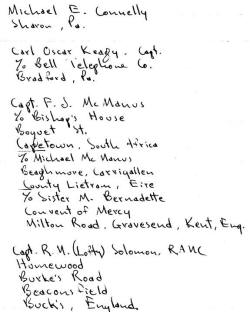 Michael E. Connelly
Sharon, Pa.
Carl Oscar Keagy. Capt.
% Bell Telephone Co.
Bradford, Pa.
Capt. F. J. McManus
% Bishop's House
Bouquet St.
Capetown, South Africa
% Michael McManus
Beaghmore, Carrigallen
County Lietram, Eire
% Sister M. Bernadette
Convent of Mercy
Milton Road, Gravesend, Kent, Eng.
Capt. R. M. (Lofty) Solomon, RAMC
Homewood
Burke's Road
Beaconsfield
Buck's, England.